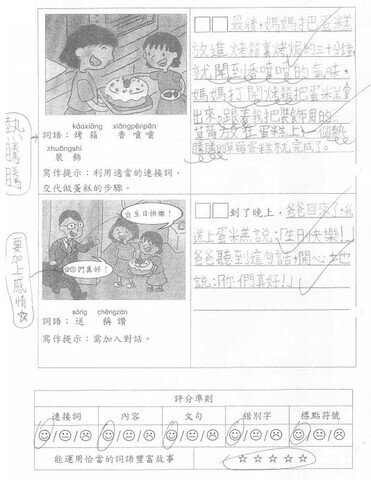 最後，媽媽把蛋糕
放進烤箱裏烤焗約三十分鐘，
就聞到香噴噴的氣味，
媽媽打開烤箱把蛋米羔拿
出來，跟着我把裝飾用的
草莓放在蛋糕上，一個熱
騰騰的草莓蛋糕就完成了。
熱騰騰
kǎoxiāng xiāngpēnpēn
詞語：烤箱 香噴噴
zhuāngshì
裝飾
寫作提示：利用適當的連接詞，
交代做蛋糕的步驟。
☆生日快樂！
☆你們真好！
要加上感情☆
sòng chēngzàn
詞語：送 稱讚
寫作提示：需加入對話。
到了晚上，爸爸回來了，我
送上蛋米羔説：「生日快樂！」
爸爸聽到這句話，開心地
説：「你們真好！」
評分準則
連接詞 內容 文句 錯別字 標點符號
☺/😐/☹ ☺/😐/☹ ☺/😐/☹ ☺/😐/☹ ☺/😐/☹
能運用恰當的詞語豐富故事 ☆☆☆☆☆